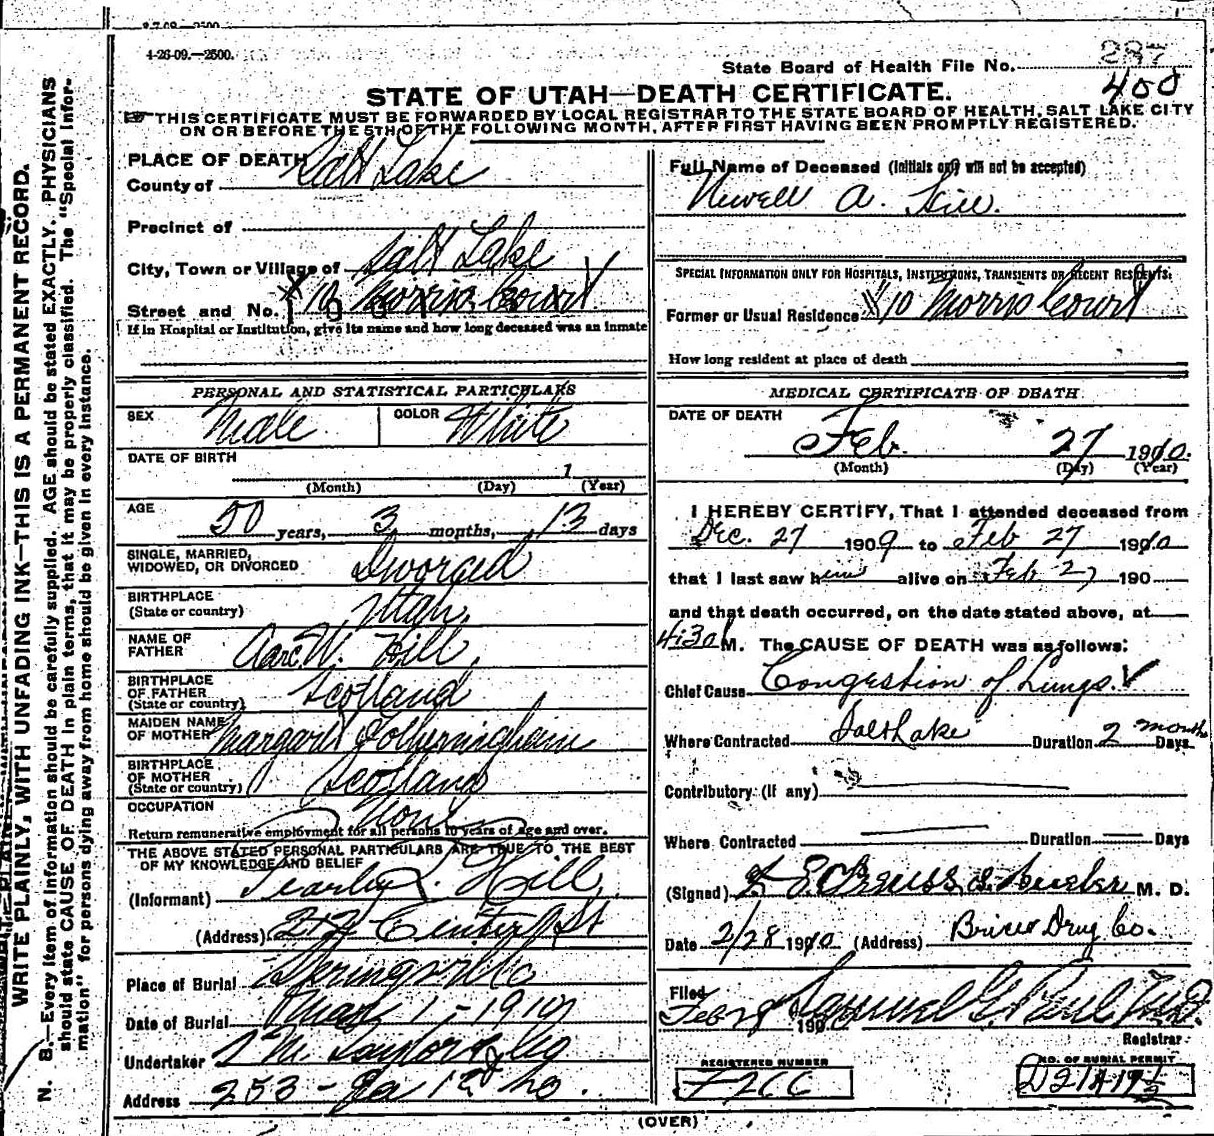 4-26-09.—2500.
State Board of Health File No. 287
408
STATE OF UTAH—DEATH CERTIFICATE.
THIS CERTIFICATE MUST BE FORWARDED BY LOCAL REGISTRAR TO THE STATE BOARD OF HEALTH, SALT LAKE CITY
ON OR BEFORE THE 5TH OF THE FOLLOWING MONTH, AFTER FIRST HAVING BEEN PROMPTLY REGISTERED.
WRITE PLAINLY, WITH UNFADING INK—THIS IS A PERMANENT RECORD.
N. B.—Every item of information should be carefully supplied. AGE should be stated EXACTLY. PHYSICIANS
should state CAUSE OF DEATH in plain terms, that it may be properly classified. The "Special Infor-
mation" for persons dying away from home should be given in every instance.
PLACE OF DEATH
County of Salt Lake
Precinct of
City, Town or Village of Salt Lake
Street and No. 10 Morris Court
If in Hospital or Institution, give its name and how long deceased was an inmate
PERSONAL AND STATISTICAL PARTICULARS
SEX Male COLOR White
DATE OF BIRTH
1
(Month) (Day) (Year)
AGE 50 years, 3 months, 13 days
SINGLE, MARRIED,
WIDOWED, OR DIVORCED Divorced
BIRTHPLACE
(State or country) Utah
NAME OF
FATHER W. Hill
BIRTHPLACE
OF FATHER
(State or country) Scotland
MAIDEN NAME
OF MOTHER Margaret Fotheringham
BIRTHPLACE
OF MOTHER
(State or country) Scotland
OCCUPATION None
Return remunerative employment for all persons 10 years of age and over.
THE ABOVE STATED PERSONAL PARTICULARS ARE TRUE TO THE BEST
OF MY KNOWLEDGE AND BELIEF
(Informant) Hill
(Address) Center St
Place of Burial Springville
Date of Burial Mar 1 - 1910
Undertaker Taylor & Co
Address 253 -
Full Name of Deceased (Initials only will not be accepted)
Newell A. Hill.
SPECIAL INFORMATION ONLY FOR HOSPITALS, INSTITUTIONS, TRANSIENTS OR RECENT RESIDENTS.
Former or Usual Residence 10 Morris Court
How long resident at place of death
MEDICAL CERTIFICATE OF DEATH
DATE OF DEATH
Feb. 27 1910.
(Month) (Day) (Year)
I HEREBY CERTIFY, That I attended deceased from
Dec. 27 1909 to Feb 27 1910
that I last saw him alive on Feb 27 190
and that death occurred, on the date stated above, at
4:30 M. The CAUSE OF DEATH was as follows:
Chief Cause Congestion of Lungs.
Where Contracted Salt Lake Duration 2 months Days
Contributory (if any)
Where Contracted Duration Days
(Signed) M. D.
Date 2/28 1910 (Address) Brices Drug Co.
Filed
Feb 28 190 Samuel G. Paul M.D.
Registrar
REGISTERED NUMBER
NO. OF BURIAL PERMIT
(OVER)